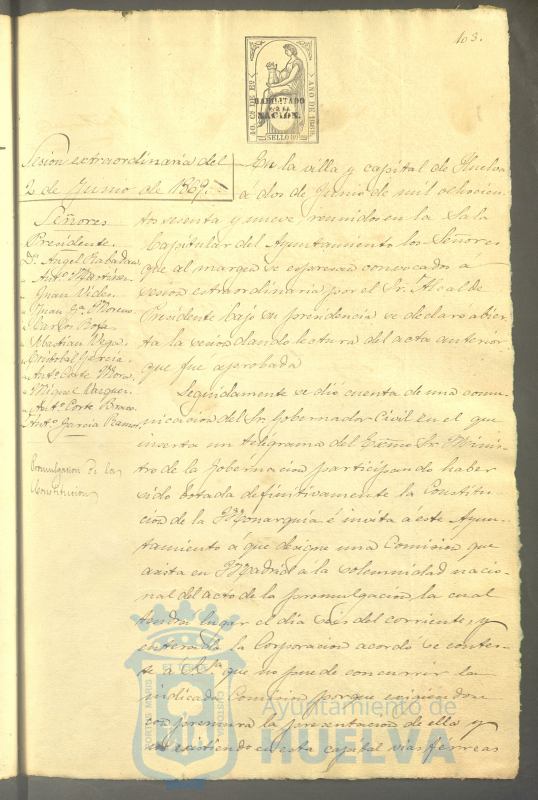 103.
10 Cs DE Eo
AÑO DE 1869
HABILITADO
POR LA
NACION.
SELLO 9º
Sesion extraordinaria del
2 de Junio de 1869.
Señores
Presidente.
D. Angel Rabadan
" Antº Martinez
" Juan Vides
" Juan Gª Moreno
" Carlos Borja
" Sebastian Vega
" Cristobal Garcia
" Antº Corte Mora
" Miguel Vazquez
" Antº Corte Bravo
" Antº Garcia Ramos
Promulgacion de la
Constitucion
En la villa y capital de Huelva
á dos de Junio de mil ochocien-
tos sesenta y nueve, reunidos en la Sala
Capitular del Ayuntamiento los Señores
que al margen se espresan convocados a
sesion estraordinaria por el Sr. Alcalde
Presidente bajo su presidencia se declaro abier-
ta la sesion dando lectura del acta anterior
que fue aprobada
Seguidamente se dió cuenta de una comu-
nicacion del Sr. Gobernador Civil en el que
inserta un telégrama del Exmo Sr. Minis-
tro de la Gobernacion participando haber
sido botada definitivamente la Constitu-
cion de la Monarquia é invita á este Ayun-
tamiento á que designe una Comision que
asista en Madrid a la solemnidad nacio-
nal del acto de la promulgacion, la cual
tendra lugar el dia seis del corriente, y
enterada la Corporacion acordó se contes-
te á S. Sª que no puede concurrir la
indicada Comision porque exigiendose
con premura la presentacion de ella y
no existiendo en esta capital vias férreas
PORTUS MARIS ET TERRE CUSTODIA
Ayuntamiento de
HUELVA